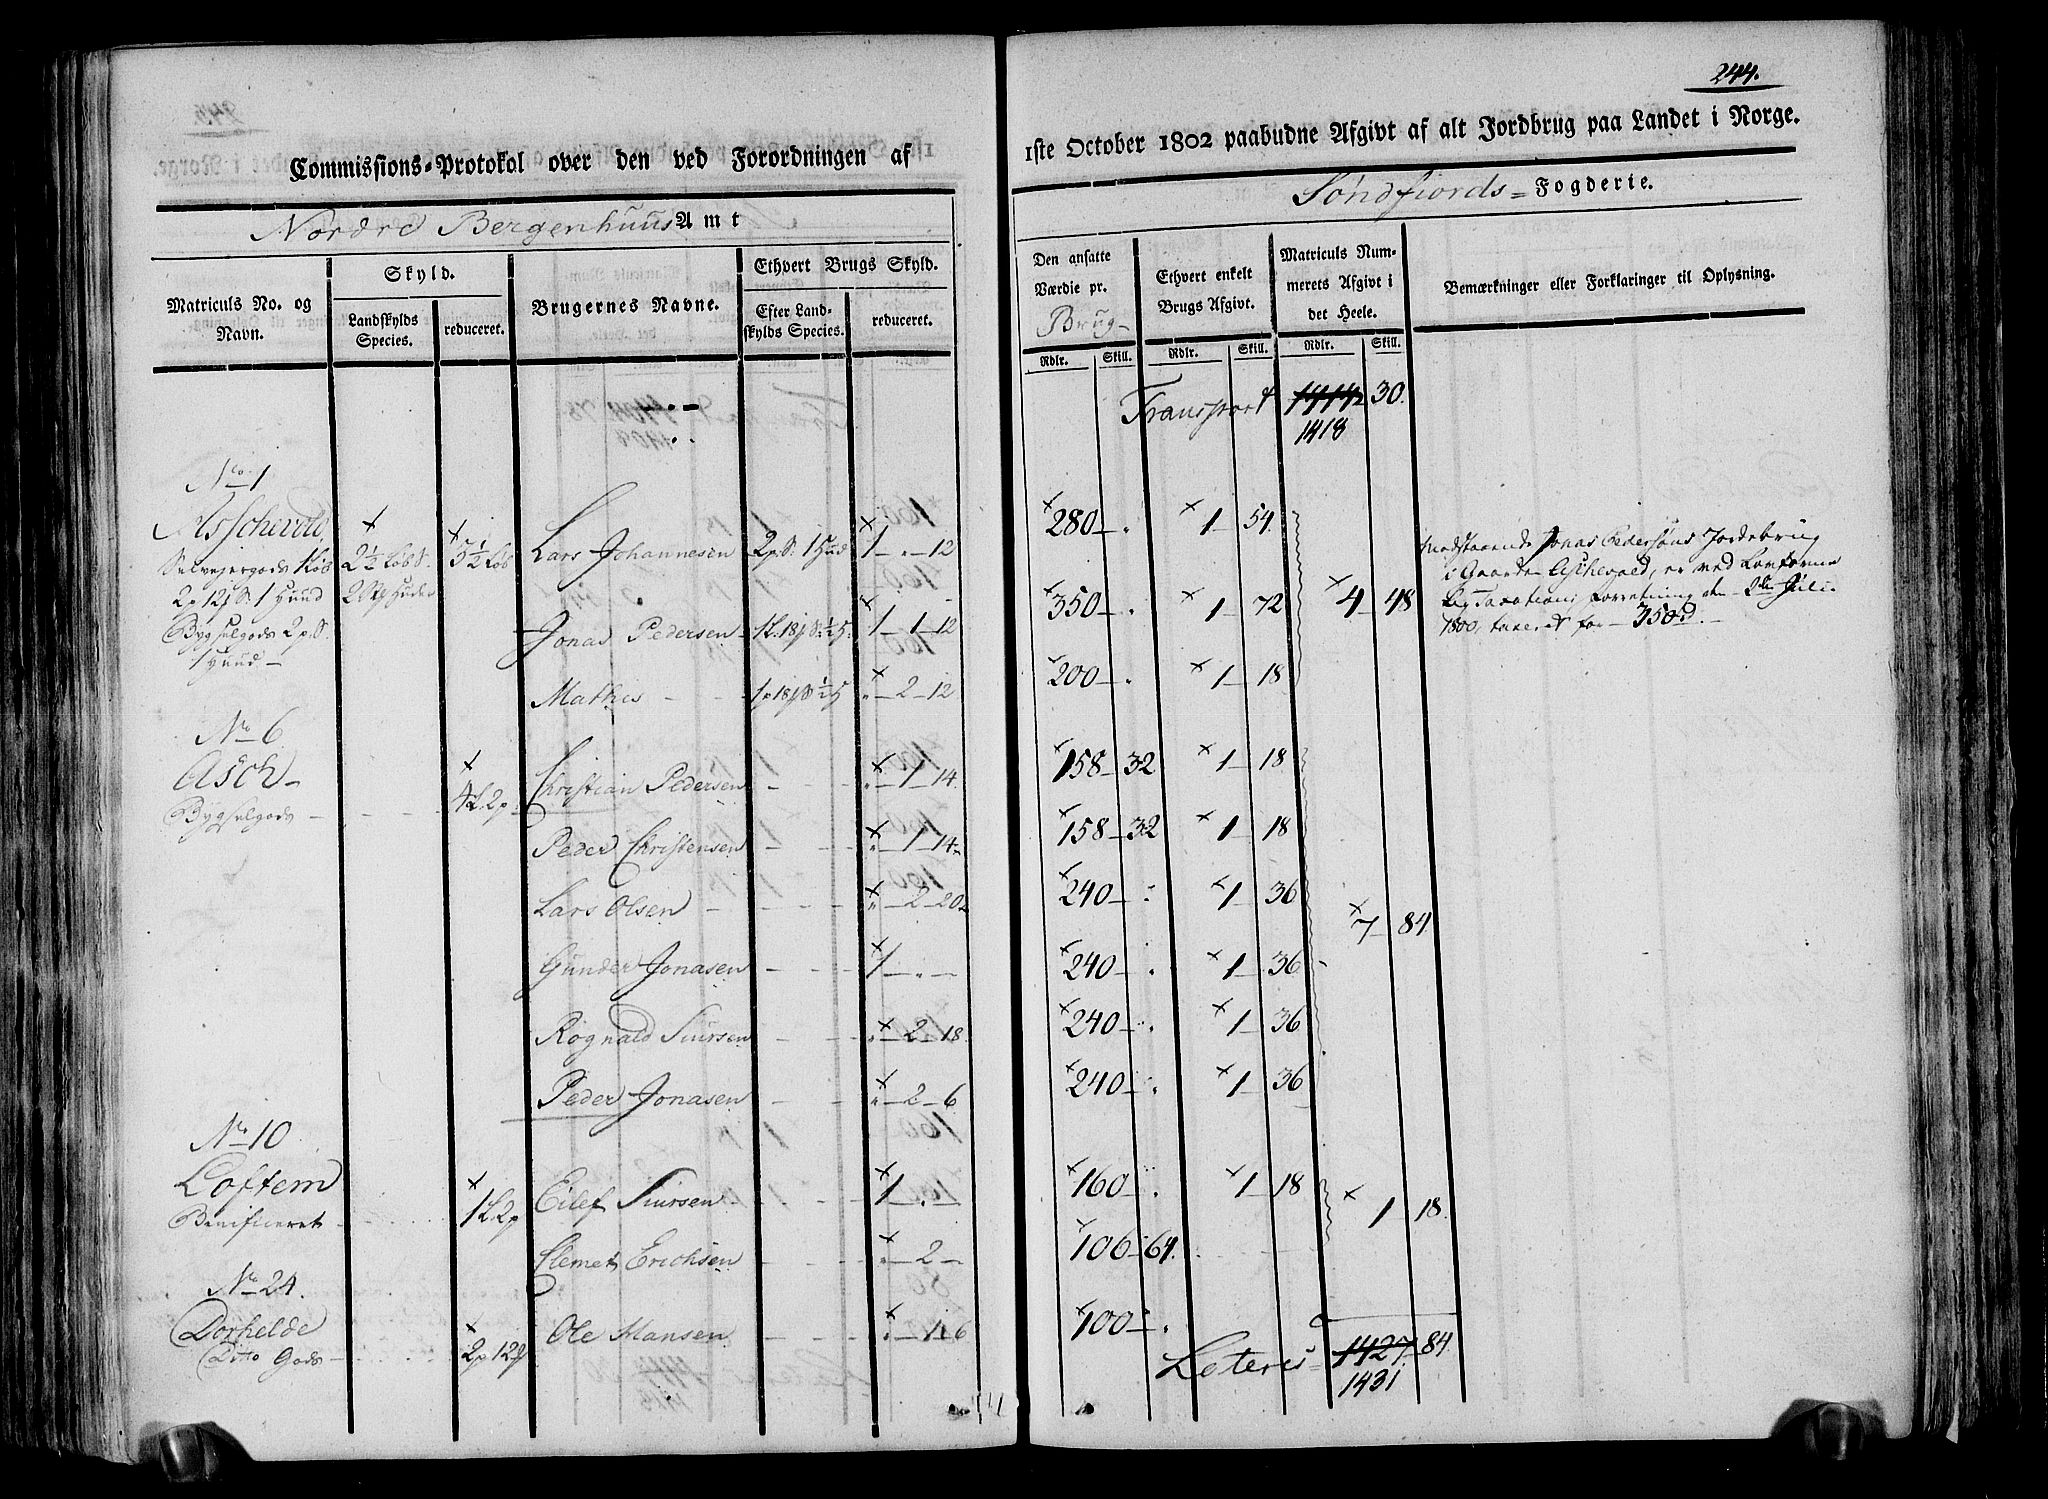 244.
Commissions-Protokol over den ved Forordningen af
1ste October 1802 paabudne Afgivt af alt Jordbrug paa Landet i Norge.
Nordre Bergenhuus Amt
Söndfiords= Fogderie.
Matriculs No. og Navn.
Skyld.
Landskylds Species.
reduceret.
Brugernes Navne.
Ethvert Brugs Skyld.
Efter Landskylds Species.
reduceret.
Den ansatte Værdie pr. Brug
Ethvert enkelt Brugs Afgivt.
Matriculs Nummerets Afgivt i det Heele.
Bemærkninger eller Forklaringer til Oplysning.
Rdlr. Skill. Rdlr. Skill. Rdlr. Skill.
Transport 1412 30.
1418
No 1
2½ Löb S. 5½ Löb Lars Johannesen 2 p. S. 1 Hud 1 - " - 12 280 - " 1 - 54
Selvejergods 1 Löb
2 p 12 S. 1 Huud
Bygselgods 2 p. S.
1 Huud -
Jonas Pedersen 1 - 1 - 12 350 - " 1 - 72 4 - 48
Jonas Pedersöns Jordebrug
i Gaarden Aschevold, er ved
Taxations forretning den 2den Julii
1800, taxeret for 350 d.
Mathis - - " - 2 - 12 200 - " 1 - 18
No 6
Asch - 4 L. 2 p. Christian Pedersen " - 1 - 14 158 - 32 1 - 18
Bygselgods -
Peder Christensen " - 1 - 14 158 - 32 1 - 18
Lars Olsen " - 2 - 20 240 - " 1 - 36 7 - 84
Gunder Jonasen 1 - " - 240 - " 1 - 36
Rognald Siursen " - 2 - 18 240 - " 1 - 36
Peder Jonasen " - 2 - 6 240 - " 1 - 36
No 10
Loftem 1 L 2 p Eilef Siursen 1 - " - 160 - " 1 - 18 1 - 18
Benificeret -
Clemet Erichsen " - 2 - 106 - 64
No 24.
Dorhelde 2 p 12 Ole Mansen " - 1 - 6 100 - "
Ditto Gods -
Lateris 1427 84
1431